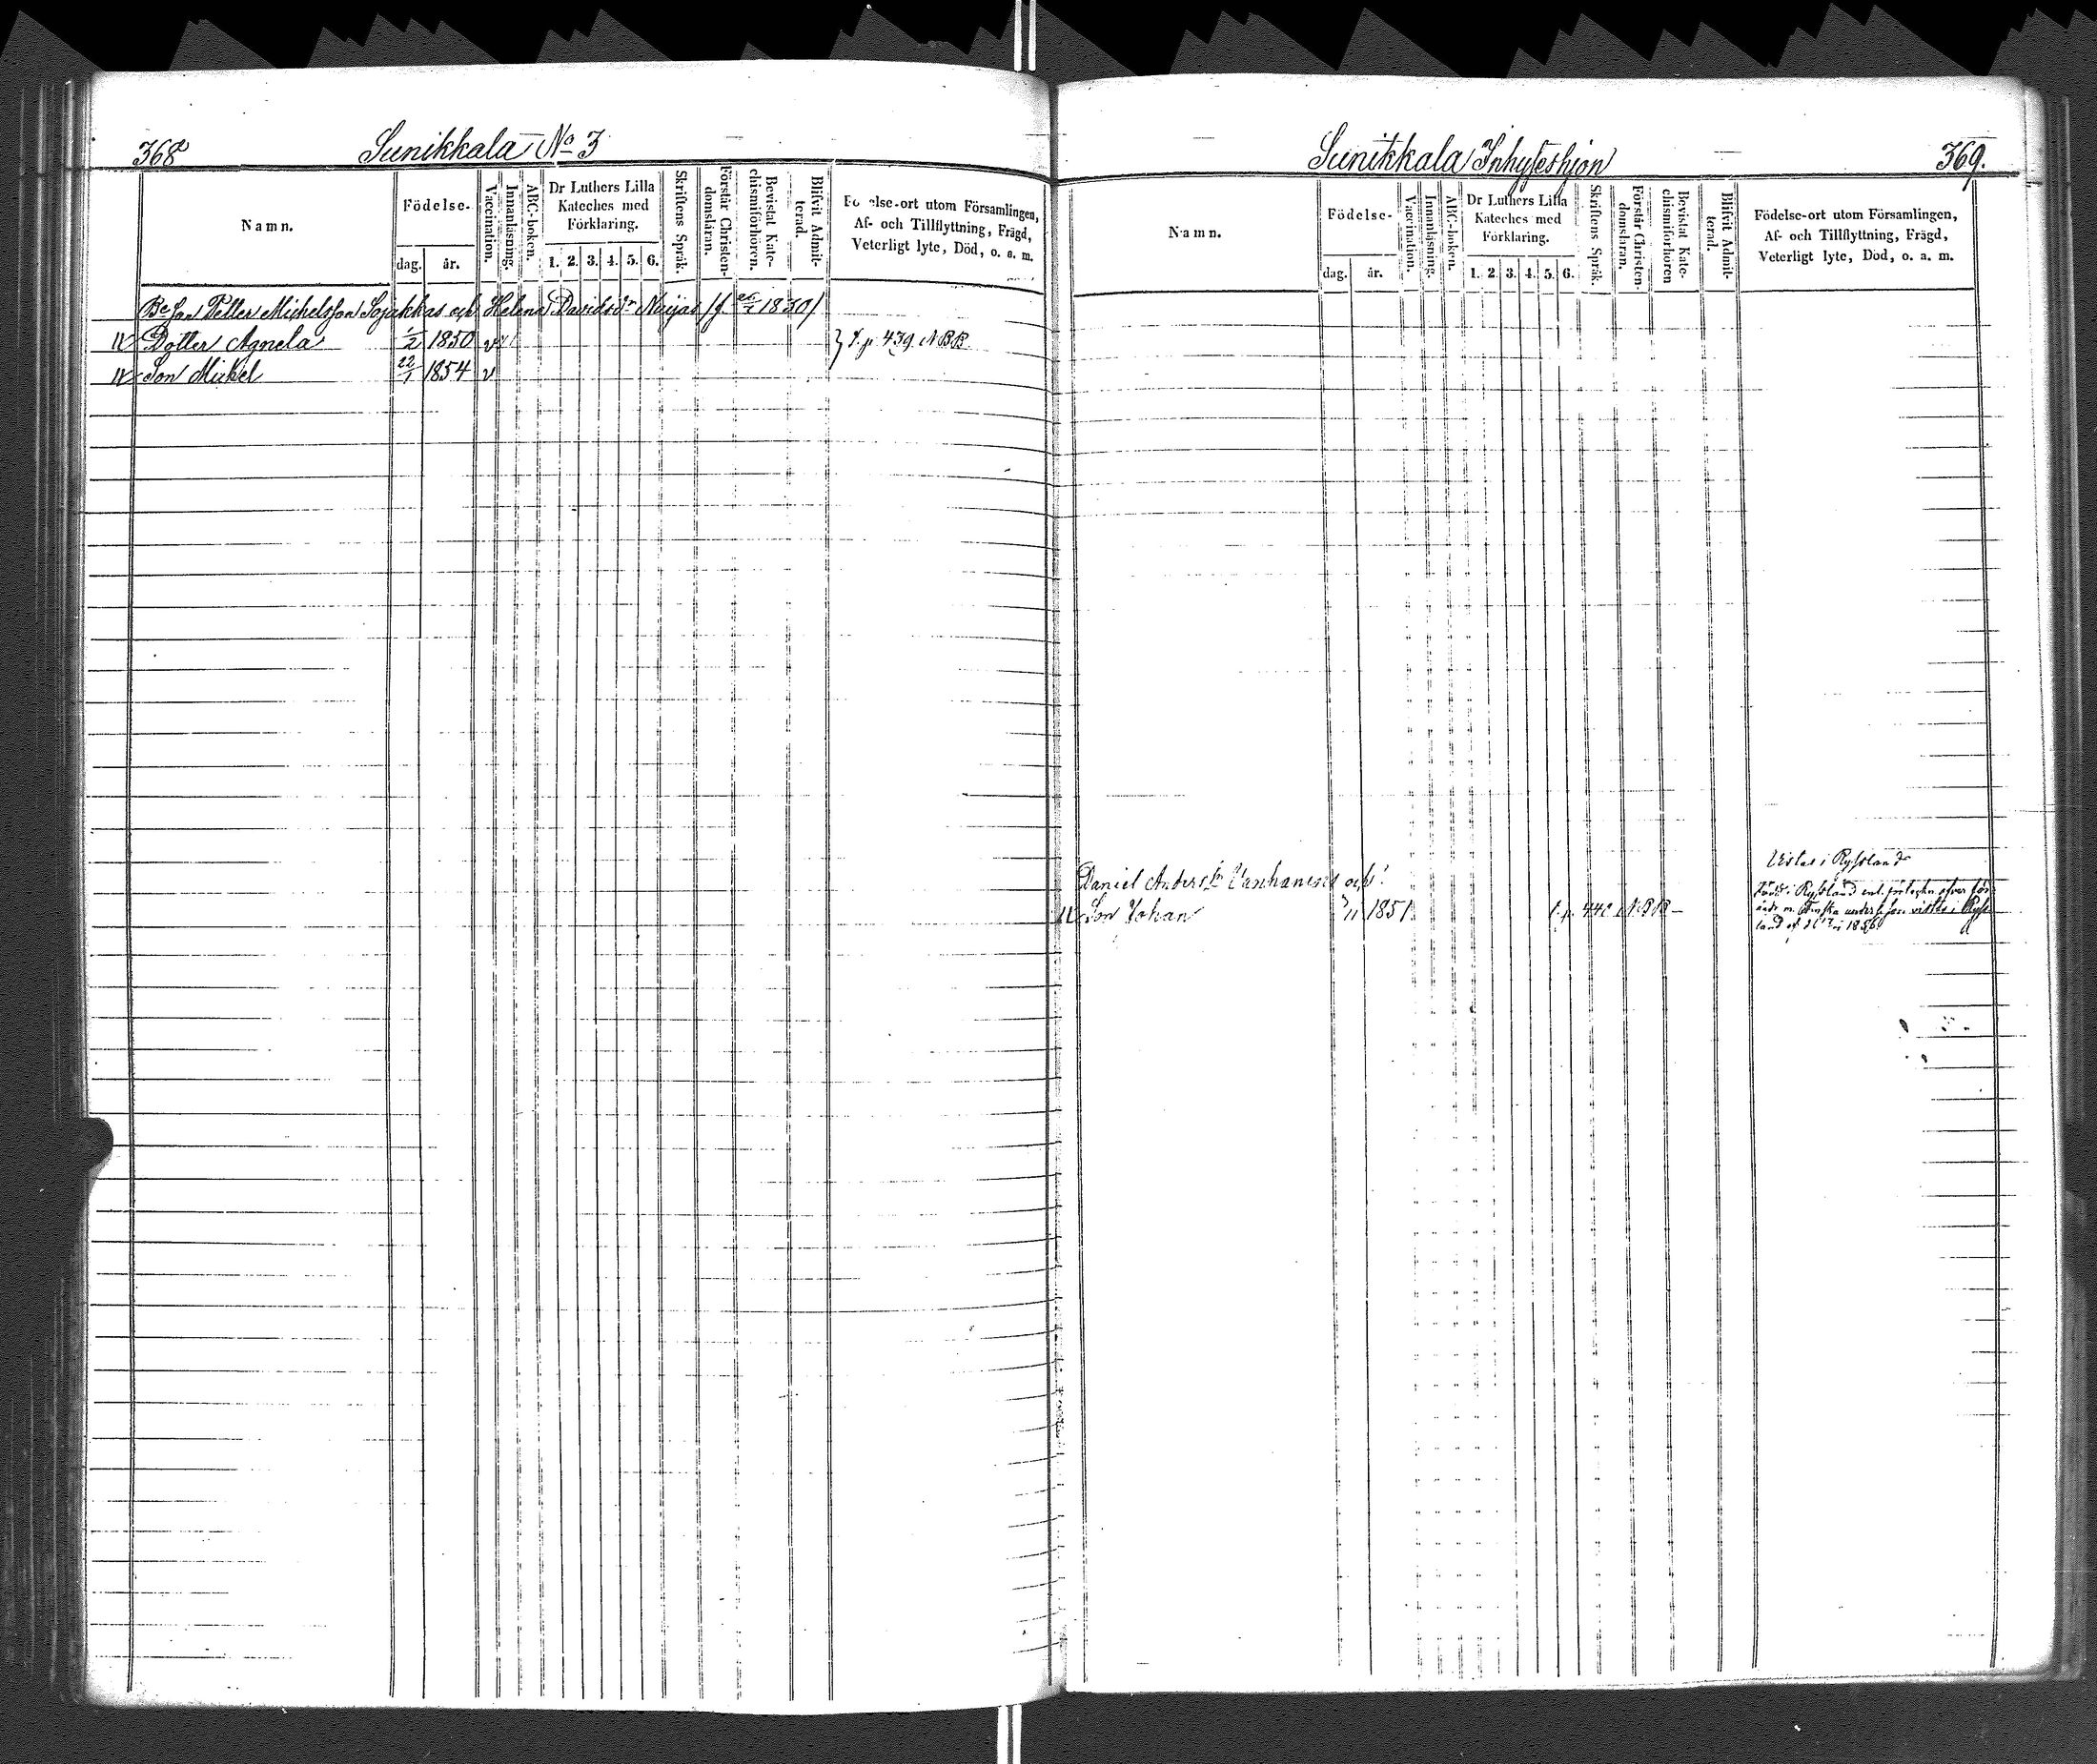 368
Sunikkala No 3
Namn.
Födelse-
dag.
år.
Vaccination.
Innanläsning.
ABC-boken.
Dr Luthers Lilla
Kateches med
Förklaring.
1. 2. 3. 4. 5. 6.
Skriftens Språk.
Förstår Christen-
domsläran.
Bevistat Kate-
chismiförhören.
Blifvit Admit-
terad.
Födelse-ort utom Församlingen,
Af- och Tillflyttning, Frägd,
Veterligt lyte, Död, o. a. m.
Be Son Petter Michelsson Sojakkas och Helena Davidsdr Nuijas /f. 1830/
Dotter Agneta 1/2 1850 v
} f. p. 439 NBB.
Son Mickel 22/1 1854 v
Sunikkala Inhyseshjon
369.
Namn.
Födelse-
dag.
år.
Vaccination.
Innanläsning.
ABC-boken.
Dr Luthers Lilla
Kateches med
Förklaring.
1. 2. 3. 4. 5. 6.
Skriftens Språk.
Förstår Christen-
domsläran.
Bevistat Kate-
chismiförhören
Blifvit Admit-
terad.
Födelse-ort utom Församlingen,
Af- och Tillflyttning, Frägd,
Veterligt lyte, Död, o. a. m.
Vistas i Ryssland
Daniel Anders Vanhanen och
Född i Ryssland enl.
Son Johan 1851 f. p. 440 NBB
vistas i Ryss-
land 1856